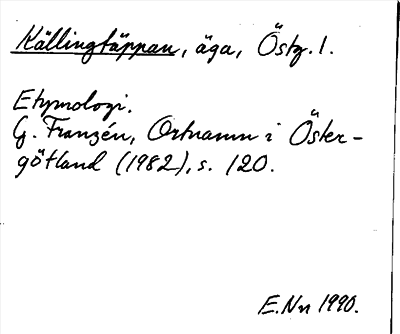 Källingtäppan, äga, Östg. 1.
Etymologi.
G. Franzén, Ortnamn i Öster-
götland (1982), s. 120.
E. Nn 1990.